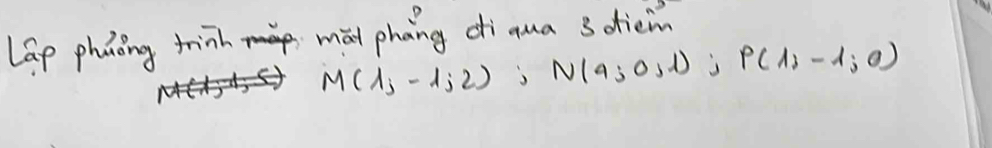 Lập phương trình mặt phẳng đi qua 3 điểm
M(1; -1; 2) ; N(9; 0; 1) ; P(1; -1; 0)